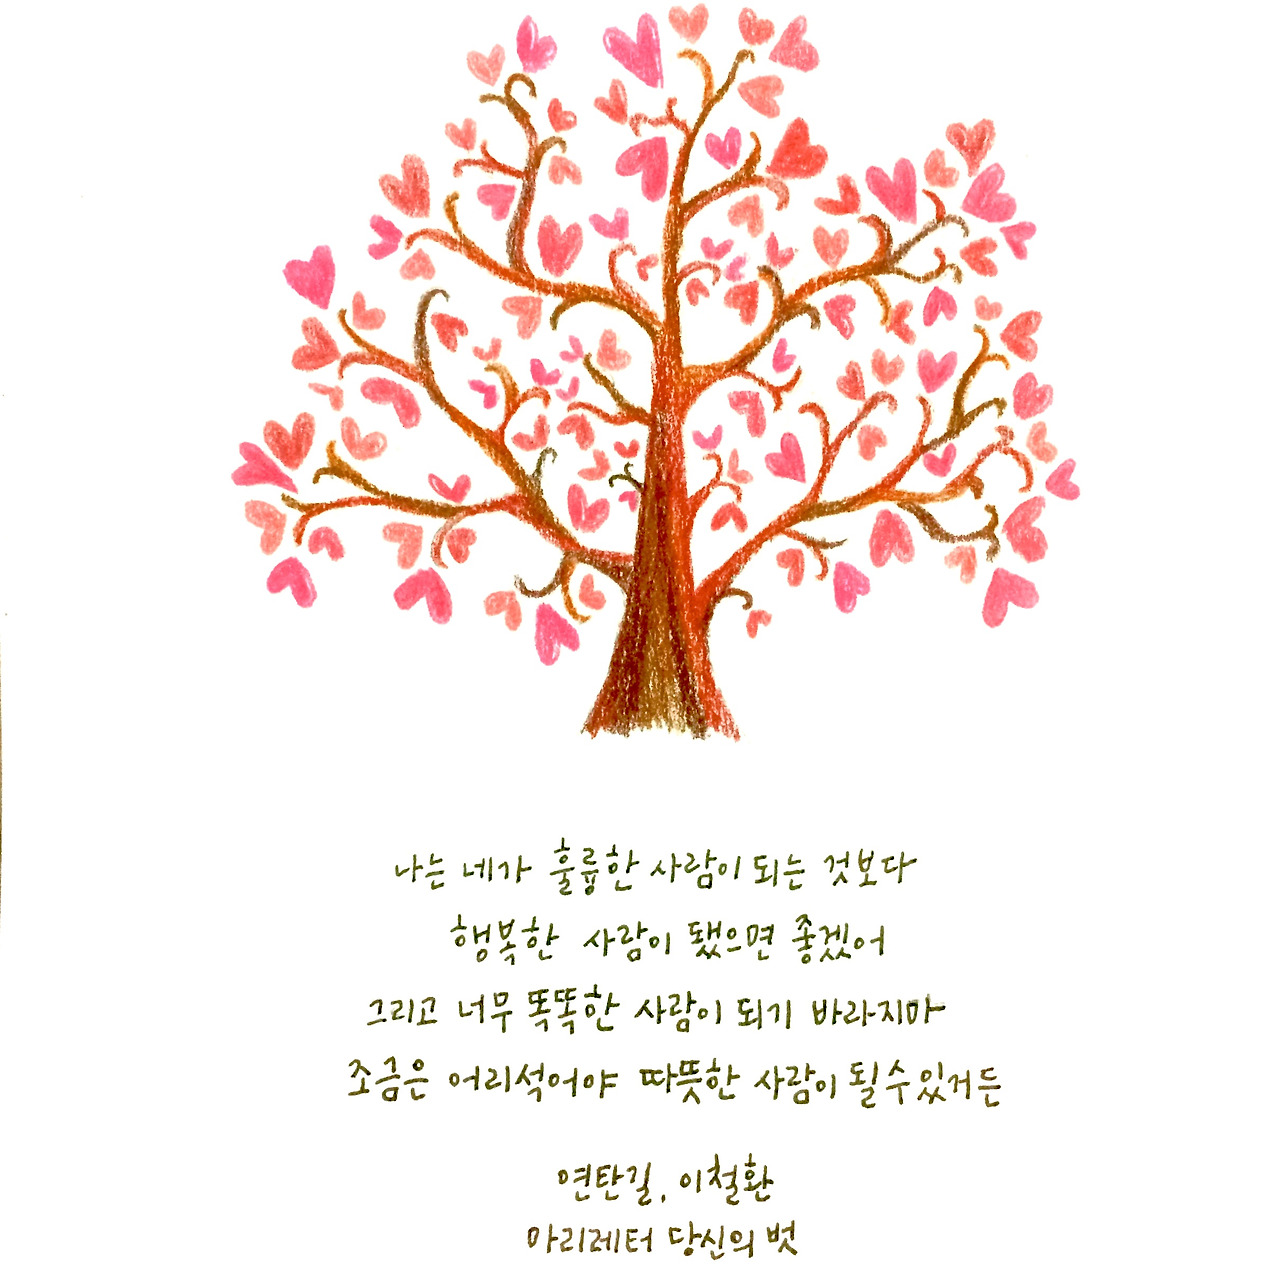 나는 네가 훌륭한 사람이 되는 것보다
행복한 사람이 됐으면 좋겠어
그리고 너무 똑똑한 사람이 되기 바라지마
조금은 어리석어야 따뜻한 사람이 될수있거든
연탄길, 이철환
마리레터 당신의 벗